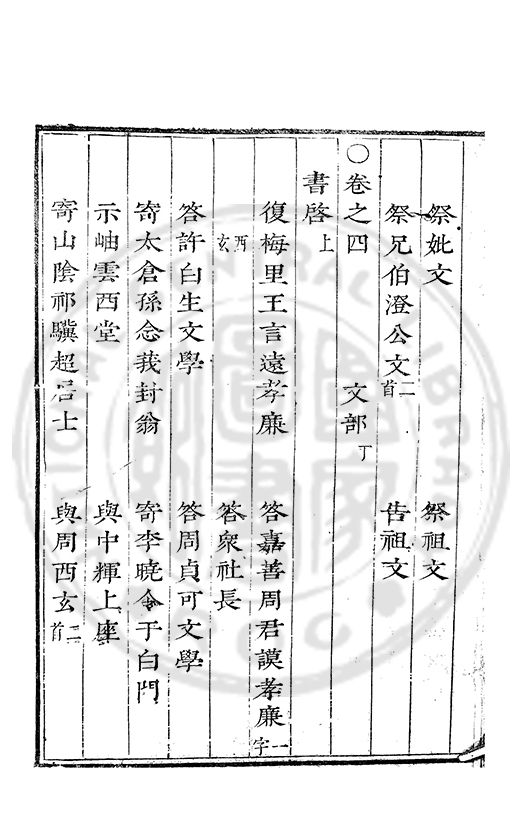 祭妣文　祭祖文
祭兄伯澄公文二首　告祖文
○卷之四　文部丁
書啓上
復梅里王言遠孝廉　答嘉善周君謨孝廉一字
西玄　答衆社長
答許白生文學　答周貞可文學
寄太倉孫念莪封翁　寄李曉令于白門
示岫雲西堂　與中輝上座
寄山陰祁驥超居士　與周西玄二首